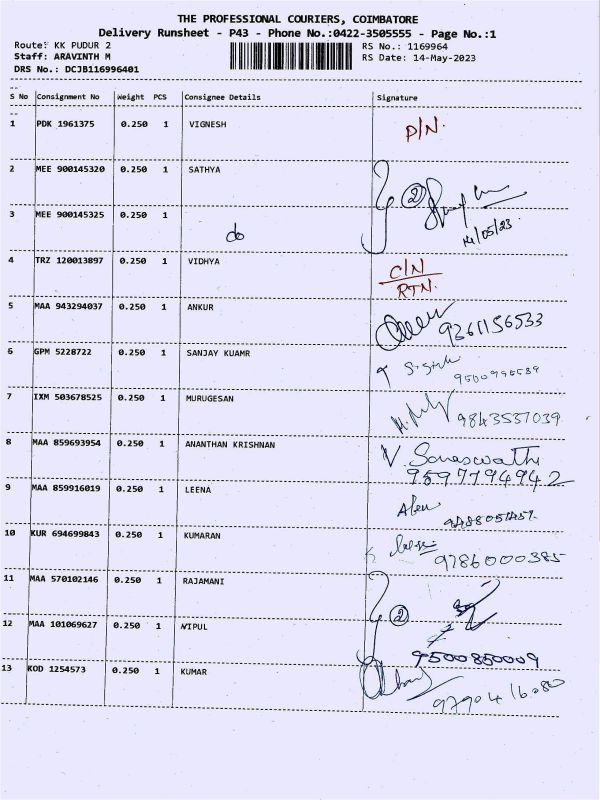 THE PROFESSIONAL COURIERS, COIMBATORE
Delivery Runsheet - P43 - Phone No.:0422-3505555 - Page No.:1
Route: KK PUDUR 2 RS No.: 1169964
Staff: ARAVINTH M RS Date: 14-May-2023
DRS No.: DCJB116996401
S No Consignment No Weight PCS Consignee Details Signature
1 PDK 1961375 0.250 1 VIGNESH P/N.
2 MEE 900145320 0.250 1 SATHYA 2
3 MEE 900145325 0.250 1 do 14/05/23
4 TRZ 120013897 0.250 1 VIDHYA C/N
RTN.
5 MAA 943294037 0.250 1 ANKUR 9361156533
6 GPM 5228722 0.250 1 SANJAY KUAMR
7 IXM 503678525 0.250 1 MURUGESAN 9843537039
8 MAA 859693954 0.250 1 ANANTHAN KRISHNAN V. Saraswathi
9597794942
9 MAA 859916019 0.250 1 LEENA
10 KUR 694699843 0.250 1 KUMARAN 9786000385
11 MAA 570102146 0.250 1 RAJAMANI 2
12 MAA 101069627 0.250 1 NIPUL 9500850009
13 KOD 1254573 0.250 1 KUMAR 9790416080